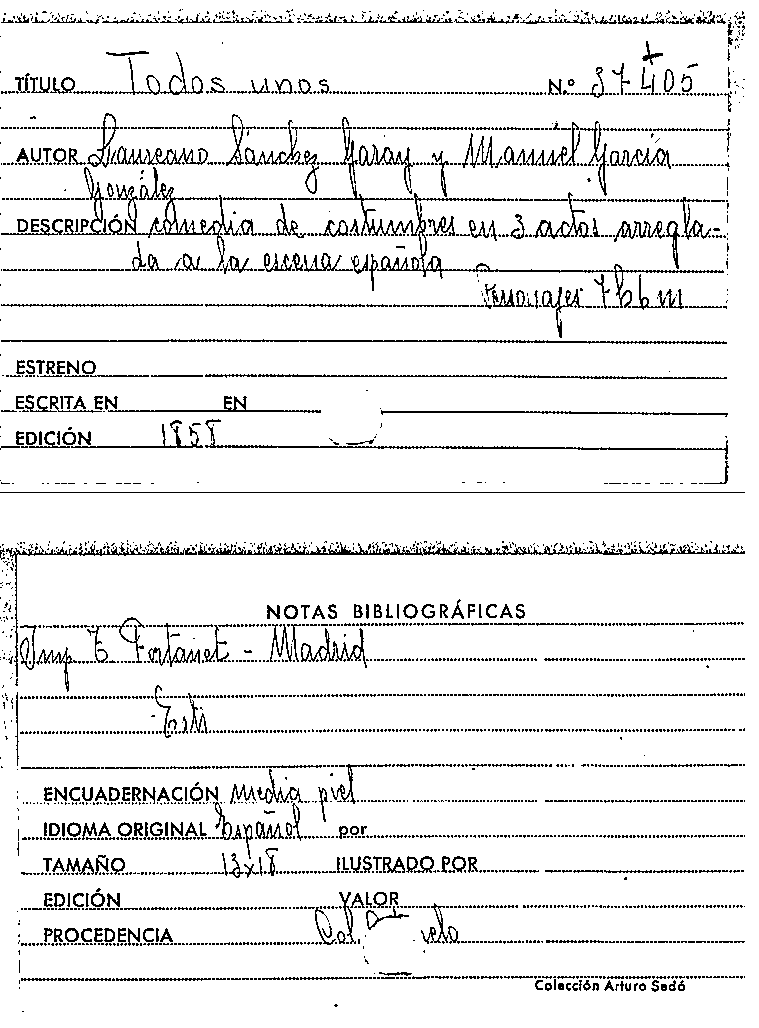 TÍTULO Todos unos N.º 37405
AUTOR Laureano Sánchez Garay y Manuel García
González
DESCRIPCIÓN comedia de costumbres en 3 actos arregla-
da a la escena española
Personajes 7 h 6 m
ESTRENO
ESCRITA EN EN
EDICIÓN 1858
NOTAS BIBLIOGRÁFICAS
Imp T Fortanet - Madrid
ENCUADERNACIÓN Media piel
IDIOMA ORIGINAL Español por
TAMAÑO 13x18 ILUSTRADO POR
EDICIÓN VALOR
PROCEDENCIA Col.
Colección Arturo Sedó